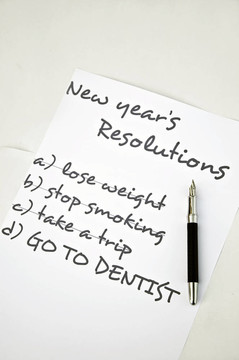 New year's
Resolutions
a) lose weight
b) stop smoking
c) take a trip
d) GO TO DENTIST